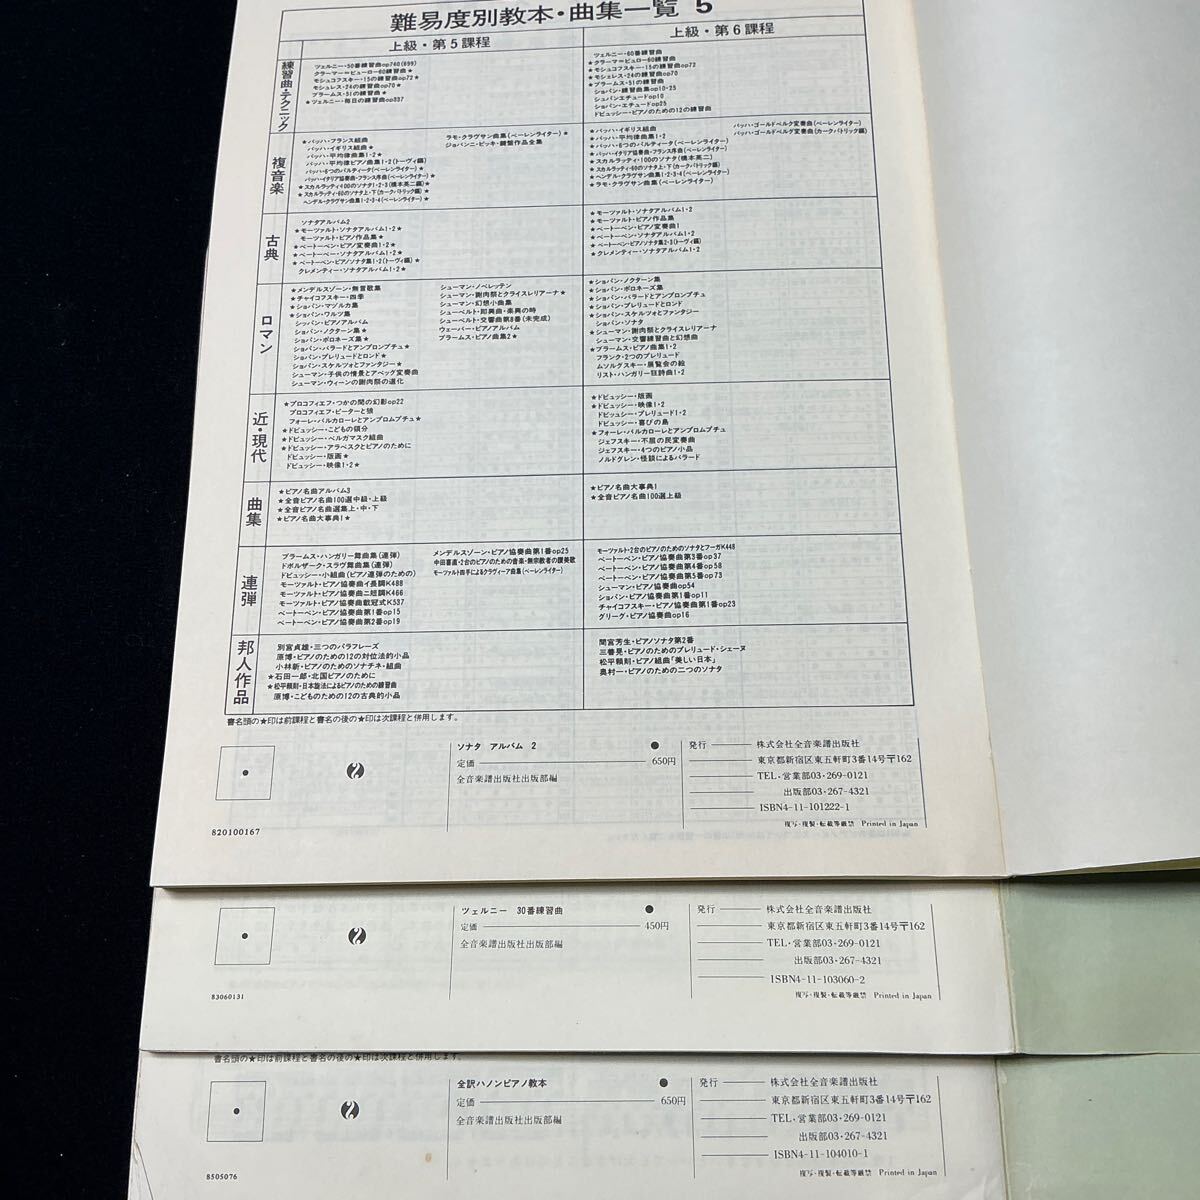 難易度別教本・曲集一覧 5
上級・第5課程
上級・第6課程
練習曲・テクニック
ツェルニー・50番練習曲op740(699)
クラーマー=ビューロー60練習曲★
モシュコフスキー・15の練習曲op72★
モシェレス・24の練習曲op70★
ブラームス・51の練習曲★
★ツェルニー・毎日の練習曲op337
ツェルニー・60番練習曲
★クラーマー=ビュロー60練習曲
★モシュコフスキー・15の練習曲op72
★モシェレス・24の練習曲op70
★ブラームス・51の練習曲
ショパン・練習曲集op10・25
ショパンエチュードop10
ショパン・エチュードop25
ドビュッシー・ピアノのための12の練習曲
複音楽
★バッハ・フランス組曲
バッハ・イギリス組曲★
バッハ・平均律曲集1・2★
バッハ・平均律ピアノ曲集1・2(トーヴィ編)
バッハ・6つのパルティータ(ベーレンライター)★
バッハ・イタリア協奏曲・フランス序曲(ベーレンライター)
★スカルラッティ100のソナタ1・2・3(橋本英二編)★
★スカルラッティ・60のソナタ上・下(カーク・パトリック編)★
ヘンデル・クラヴサン曲集1・2・3・4(ベーレンライター)★
ラモ・クラヴサン曲集(ベーレンライター)★
ジョバンニ・ピッキ・鍵盤作品全集
★バッハ・イギリス組曲
★バッハ・平均律曲集1・2
★バッハ・6つのパルティータ(ベーレンライター)
★バッハ・イタリア協奏曲・フランス序曲(ベーレンライター)
★スカルラッティ・100のソナタ(橋本英二)
★スカルラッティ・60のソナタ上・下(カーク・パトリック編)
★ヘンデル・クラヴサン曲集1・2・3・4(ベーレンライター)
★ラモ・クラヴサン曲集(ベーレンライター)
バッハ・ゴールドベルク変奏曲(ベーレンライター)
バッハ・ゴールドベルク変奏曲(カークパトリック編)
古典
ソナタアルバム2
★モーツァルト・ソナタアルバム1・2★
モーツァルト・ピアノ作品集★
★ベートーベン・ピアノ変奏曲1・2★
★ベートーベン・ソナタアルバム1・2★
★ベートーベン・ピアノソナタ集1・2(トーヴィ編)★
クレメンティー・ソナタアルバム1・2★
★モーツァルト・ソナタアルバム1・2
★モーツァルト・ピアノ作品集
★ベートーベン・ピアノ変奏曲1
★ベートーベン・ソナタアルバム1・2
★ベートーベン・ピアノソナタ集2・3(トーヴィ編)
★クレメンティー・ソナタアルバム1・2
ロマン
★メンデルスゾーン・無言歌集
★チャイコフスキー・四季
★ショパン・マヅルカ集
★ショパン・ワルツ集
シッパン・ピアノアルバム
ショパン・ノクターン集★
ショパン・ポロネーズ集★
ショパン・バラードとアンプロンプチュ★
ショパン・プレリュードとロンド★
ショパン・スケルツォとファンタジー★
シューマン・子供の情景とアベッグ変奏曲
シューマン・ウィーンの謝肉祭の道化
シューマン・ノベレッテン
シューマン・謝肉祭とクライスレリアーナ★
シューマン・幻想小曲集
シューベルト・即興曲・楽興の時
シューベルト・交響曲第8番(未完成)
ウェーバー・ピアノアルバム
ブラームス・ピアノ曲集2★
★ショパン・ノクターン集
★ショパン・ポロネーズ集
★ショパン・バラードとアンプロンプチュ
★ショパン・プレリュードとロンド
★ショパン・スケルツォとファンタジー
ショパン・ソナタ
★シューマン・謝肉祭とクライスレリアーナ
シューマン・交響練習曲と幻想曲
★ブラームス・ピアノ曲集1・2
フランク・2つのプレリュード
ムソルグスキー・展覧会の絵
リスト・ハンガリー狂詩曲1・2
近・現代
★プロコフィエフ・つかの間の幻影op22
プロコフィエフ・ピーターと狼
フォーレ・バルカローレとアンプロムプチュ★
★ドビュッシー・こどもの領分
★ドビュッシー・ベルガマスク組曲
★ドビュッシー・アラベスクとピアノのために
ドビュッシー・版画★
ドビュッシー・映像1・2★
★ドビュッシー・版画
★ドビュッシー・映像1・2
ドビュッシー・プレリュード1・2
ドビュッシー・喜びの島
★フォーレ・バルカローレとアンプロムプチュ
ジェフスキー・不屈の民変奏曲
ジェフスキー・4つのピアノ小品
ノルドグレン・怪談によるバラード
曲集
★ピアノ名曲アルバム3
★全音ピアノ名曲100選中級・上級
★全音ピアノ名曲選集上・中・下
★ピアノ名曲大事典1★
★ピアノ名曲大事典1
★全音ピアノ名曲100選上級
連弾
ブラームス・ハンガリー舞曲集(連弾)
ドボルザーク・スラヴ舞曲集(連弾)
ドビュッシー・小組曲(ピアノ連弾のための)
モーツァルト・ピアノ協奏曲イ長調K488
モーツァルト・ピアノ協奏曲ニ短調K466
モーツァルト・ピアノ協奏曲戴冠式K537
ベートーベン・ピアノ協奏曲第1番op15
ベートーベン・ピアノ協奏曲第2番op19
メンデルスゾーン・ピアノ協奏曲第1番op25
中田喜直・2台のピアノのための音楽・無宗教者の讃美歌
モーツァルト四手によるクラヴィーア曲集(ベーレンライター)
モーツァルト・2台のピアノのためのソナタとフーガK448
ベートーベン・ピアノ協奏曲第3番op37
ベートーベン・ピアノ協奏曲第4番op58
ベートーベン・ピアノ協奏曲第5番op73
シューマン・ピアノ協奏曲op54
ショパン・ピアノ協奏曲第1番op11
チャイコフスキー・ピアノ協奏曲第1番op23
グリーグ・ピアノ協奏曲op16
邦人作品
別宮貞雄・三つのパラフレーズ
原博・ピアノのための12の対位法的小品
小林新・ピアノのためのソナチネ・組曲
★石田一郎・北国ピアノのために
★松平頼則・日本旋法によるピアノのための練習曲
原博・こどものための12の古典的小品
間宮芳生・ピアノソナタ第2番
三善晃・ピアノのためのプレリュード・シェーヌ
松平頼則・ピアノ組曲「美しい日本」
奥村一・ピアノのための二つのソナタ
書名頭の★印は前課程と書名の後の★印は次課程と併用します。
820100167
ソナタ アルバム 2 ●
定価 650円
全音楽譜出版社出版部編
発行 株式会社全音楽譜出版社
東京都新宿区東五軒町3番14号〒162
TEL・営業部03・269-0121
出版部03・267-4321
ISBN4-11-101222-1
複写・複製・転載等厳禁 Printed in Japan
83060131
ツェルニー 30番練習曲 ●
定価 450円
全音楽譜出版社出版部編
発行 株式会社全音楽譜出版社
東京都新宿区東五軒町3番14号〒162
TEL・営業部03・269-0121
出版部03・267-4321
ISBN4-11-103060-2
複写・複製・転載等厳禁 Printed in Japan
書名頭の★印は前課程と書名の後の★印は次課程と併用します。
8505076
全訳ハノンピアノ教本 ●
定価 650円
全音楽譜出版社出版部編
発行 株式会社全音楽譜出版社
東京都新宿区東五軒町3番14号〒162
TEL・営業部03・269-0121
出版部03・267-4321
ISBN4-11-104010-1
複写・複製・転載等厳禁 Printed in Japan